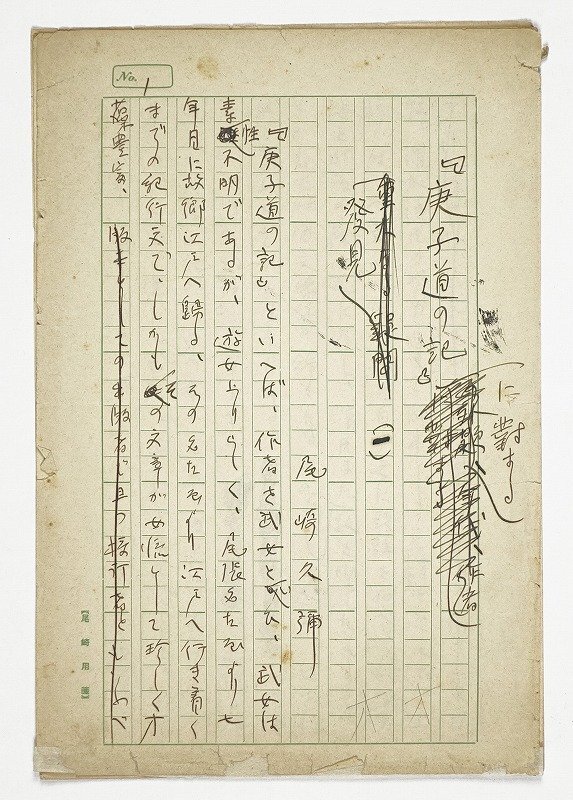 No. 1
『庚子道の記』に對する
發見
(一)
尾崎久彌
『庚子道の記』といへば、作者を武女と云ひ、武女は
素性不明であるが、遊女上りらしく、尾張名古屋より七
年目に故郷江戸へ歸る、その名古屋より江戸へ行き着く
までの紀行文で、しかもその文章が女流として珍しく才
藻豊富、
【尾崎用箋】